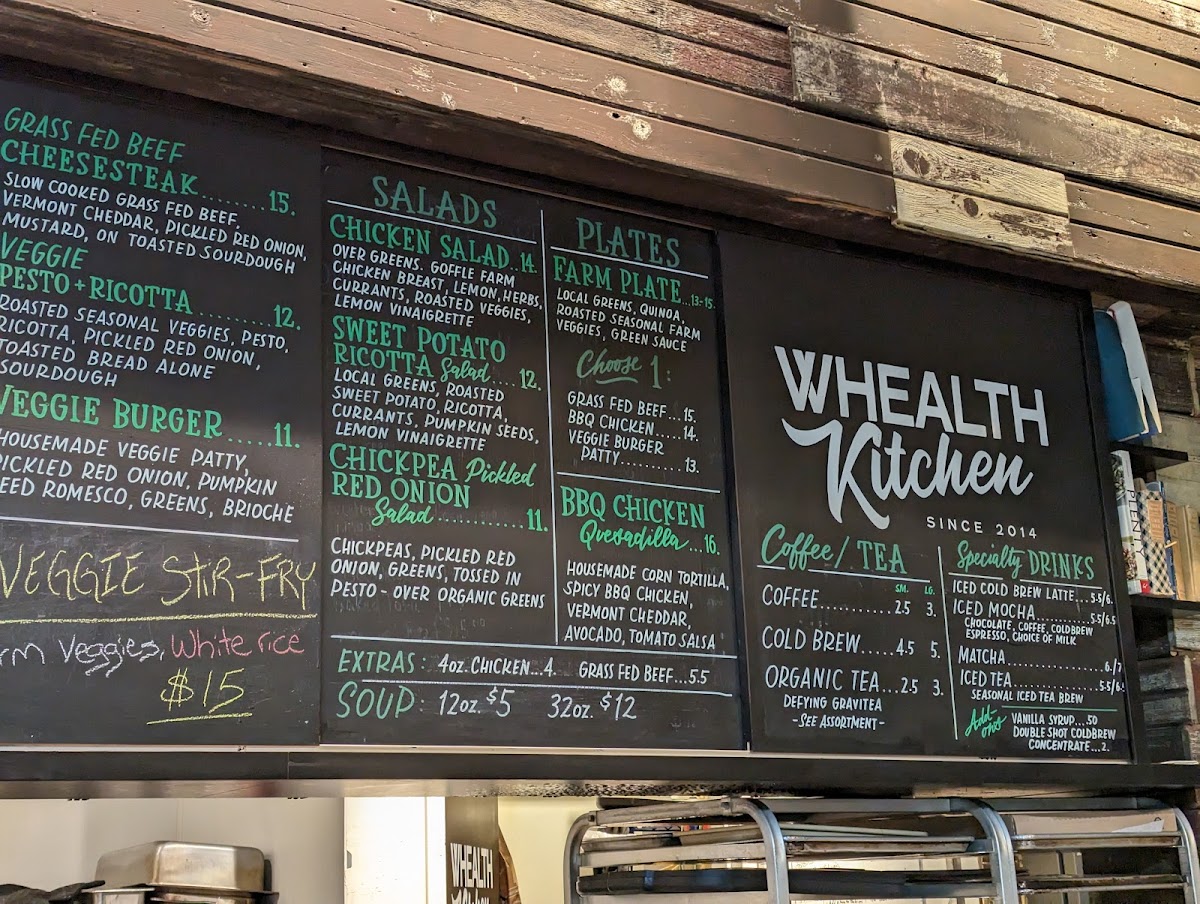 GRASS FED BEEF
CHEESESTEAK........15.
SLOW COOKED GRASS FED BEEF,
VERMONT CHEDDAR, PICKLED RED ONION,
MUSTARD, ON TOASTED SOURDOUGH
VEGGIE
PESTO + RICOTTA..........12.
ROASTED SEASONAL VEGGIES, PESTO,
RICOTTA, PICKLED RED ONION,
TOASTED BREAD ALONE
SOURDOUGH
VEGGIE BURGER.....11.
HOUSEMADE VEGGIE PATTY,
PICKLED RED ONION, PUMPKIN
SEED ROMESCO, GREENS, BRIOCHE
VEGGIE STIR-FRY
rm Veggies, White rice
$15
SALADS
CHICKEN SALAD..14.
OVER GREENS. GOFFLE FARM
CHICKEN BREAST, LEMON, HERBS,
CURRANTS, ROASTED VEGGIES,
LEMON VINAIGRETTE
SWEET POTATO
RICOTTA Salad....12.
LOCAL GREENS, ROASTED
SWEET POTATO, RICOTTA,
CURRANTS, PUMPKIN SEEDS,
LEMON VINAIGRETTE
CHICKPEA Pickled
RED ONION
Salad............11.
CHICKPEAS, PICKLED RED
ONION, GREENS, TOSSED IN
PESTO - OVER ORGANIC GREENS
PLATES
FARM PLATE...13-15.
LOCAL GREENS, QUINOA,
ROASTED SEASONAL FARM
VEGGIES, GREEN SAUCE
Choose 1:
GRASS FED BEEF...15.
BBQ CHICKEN.....14.
VEGGIE BURGER
PATTY..........13.
BBQ CHICKEN
Quesadilla...16.
HOUSEMADE CORN TORTILLA,
SPICY BBQ CHICKEN,
VERMONT CHEDDAR,
AVOCADO, TOMATO SALSA
EXTRAS: 4oz. CHICKEN...4. GRASS FED BEEF...5.5
SOUP: 12oz. $5 32oz. $12
WHEALTH
Kitchen
SINCE 2014
Coffee/ TEA
SM. LG.
COFFEE..........2.5 3.
COLD BREW.....4.5 5.
ORGANIC TEA...2.5 3.
DEFYING GRAVITEA
-SEE ASSORTMENT-
Specialty DRINKS
ICED COLD BREW LATTE...5.5/6.
ICED MOCHA...........5.5/6.5
CHOCOLATE, COFFEE, COLDBREW
ESPRESSO, CHOICE OF MILK
MATCHA...................6./7
ICED TEA.................5.5/6.
SEASONAL ICED TEA BREW
Add-ons
VANILLA SYRUP....50
DOUBLE SHOT COLDBREW
CONCENTRATE...2.
PLENTY
WHEALTH
Kitchen